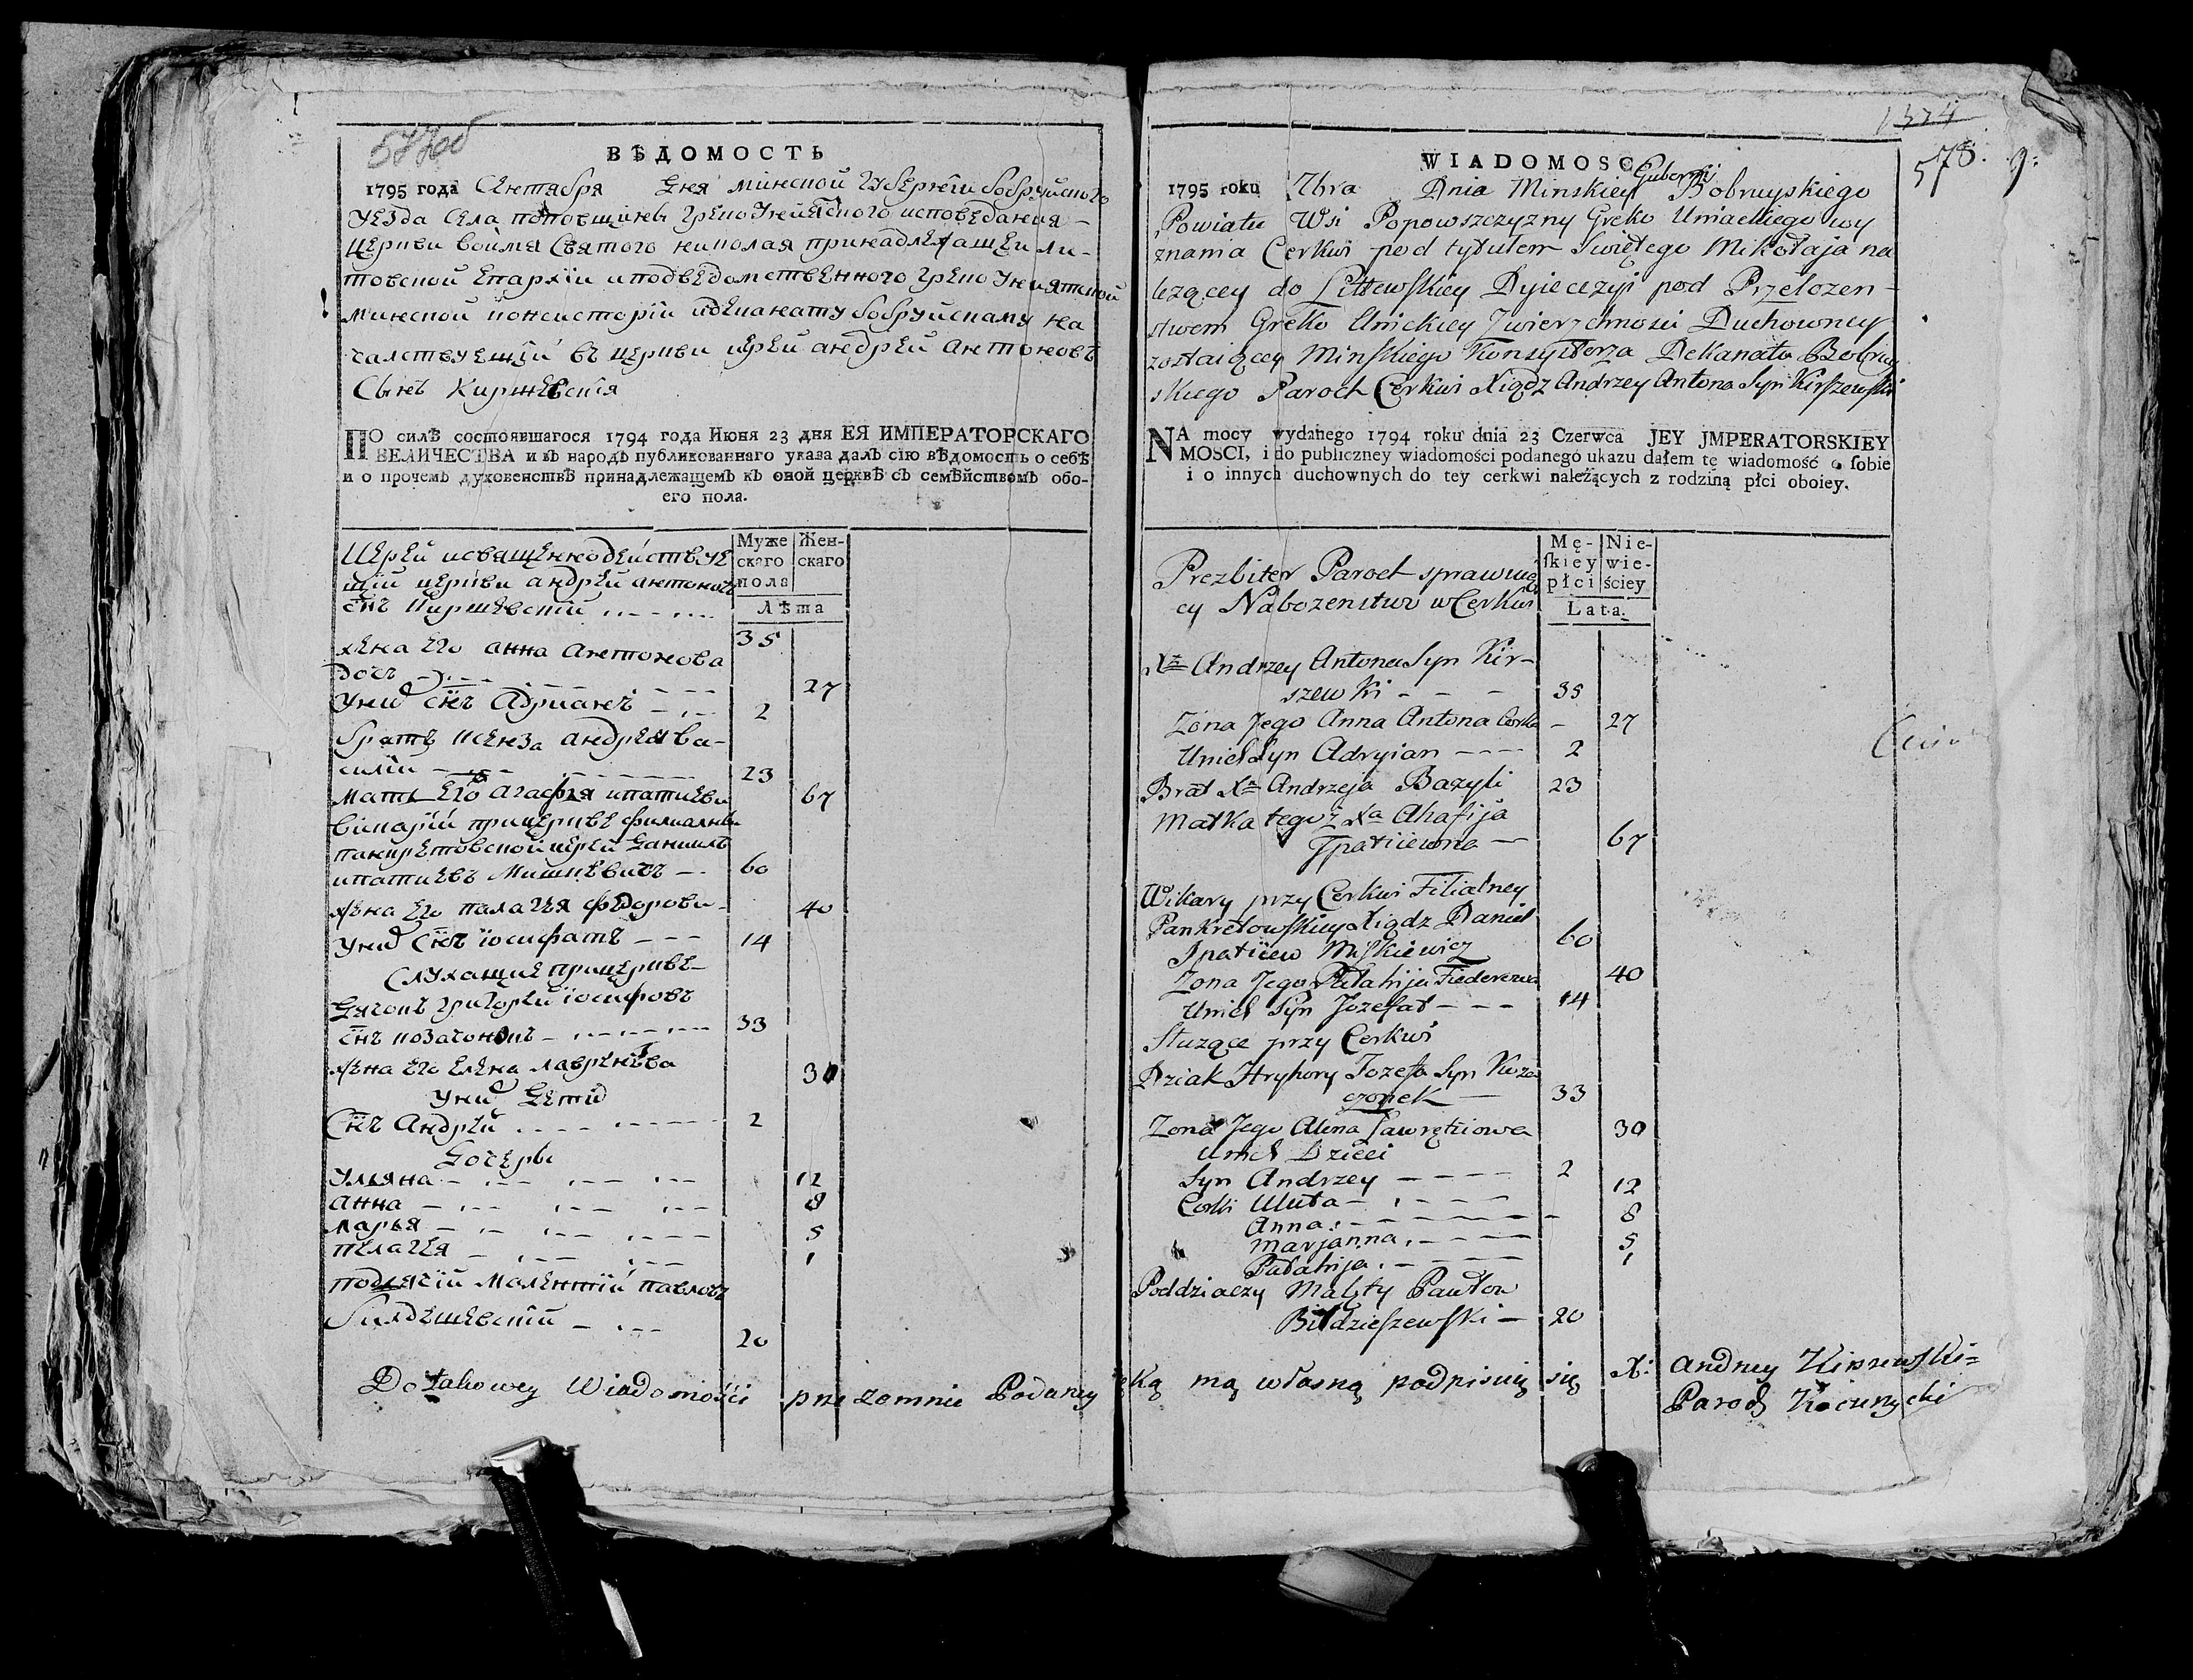 577об
ВѢДОМОСТЬ
1795 года Сентября дня минской губернїи бобруйского
уезда села поповщины греко Униятского исповедания
церкви воймя Святого николая принадлежащеи ли-
товской Епархїи и подведомственного греко Униятской
минской консисторїи идеканату бобруйскаму на
чалствуещїй въ церкви иерей андрей антоновъ
Сынъ Киршевскїя
ПО силѣ состоявшагося 1794 года Июня 23 дня ЕЯ ИМПЕРАТОРСКАГО
ВЕЛИЧЕСТВА и въ народъ публикованнаго указа далъ сїю вѣдомость о себѣ
и о прочемъ духовенствѣ принадлежащемъ къ оной церквѣ съ семѣйствомъ обо-
его пола.
Муже скаго пола
Жен- скаго
Лѣта
Иерей исвященнодействуе
щїй церкви андрей антоновъ
снъ Киршевскїй 35
жена Его анна антонова
дочь 27
Унид снъ Адрианъ 2
братъ ксенза андрея ва-
силїи 23
мать Его агафїя ипатиева 67
викарїй прицеркве филиалной
панкретовской иерей Даниилъ
ипатиевъ Мишкевичъ 60
жена Его палагея федорова 40
Унид снъ їосифатъ 14
Служащие прицеркве
Дячокъ григорей їосифовъ
снъ козачонокъ 33
жена Его Елена лаврентева 30
Унид Детид
Снъ Андрей 2
Дочерьи
Ульяна 12
анна 8
марья 5
пелагея 1
подлячїй малентїй павловъ
билдешевскїй 20
1374
578. 9:
WIADOMOSC
Gubernij
1795 roku 7bra Dnia Minskiey Bobruyskiego
Powiatu Wsi Popowszczyzny Greko Uniackiego wy
znania Cerkwi pod tytułem Swiętego Mikołaja na
lezącey do Littewskiey Dyiecezyi pod Przełozen-
stwem Greko Unickiey Zwierzchnosci Duchowney
zostaiącey Minskiego Konsystorza Dekanatu Bobruy
skiego Paroch Cerkwi Xiądz Andrzey Antona Syn Kirszewski
NA mocy wydanego 1794 roku dnia 23 Czerwca JEY JMPERATORSKIEY
MOSCI, i do publiczney wiadomości podanego ukazu dałem tę wiadomość o sobie
i o innych duchownych do tey cerkwi należących z rodziną płci oboiey.
Mę- skiey płci
Nie- wie- ściey
Lata.
Prezbiter Paroch sprawuią
cy Nabozenstwo w Cerkwi
Xa Andrzey Antona Syn Kir-
szewski 35
Zona Jego Anna Antona Corka 27
Unich Syn Adryian 2
Brat Xa Andrzeja Bazyli 23
Matka tegoż Xa Ahafija
Jpatiiewna 67
Wikary przy Cerkwi Filialney
Pankretowskiey Xiądz Daniel
Ipatiiew Miskiewicz 60
Zona Jego Pałahija Fiederowa 40
Unich Syn Jozefat 14
Słuzące przy Cerkwi
Dziak Hryhory Jozefa Syn Koza
czonek 33
Zona Jego Alena Lawrętiowa 30
Unich Dzieci
Syn Andrzey 2
Corki Uluta 12
Anna 8
Marjanna 5
Pałahija 1
Poddziaczy Malęty Pawłow
Bildzieszewski 20
Do takowey Wiadomości przezemnie Podaney ręką mą własną podpisuię się X: Andrzey Kirszewski
Paroch